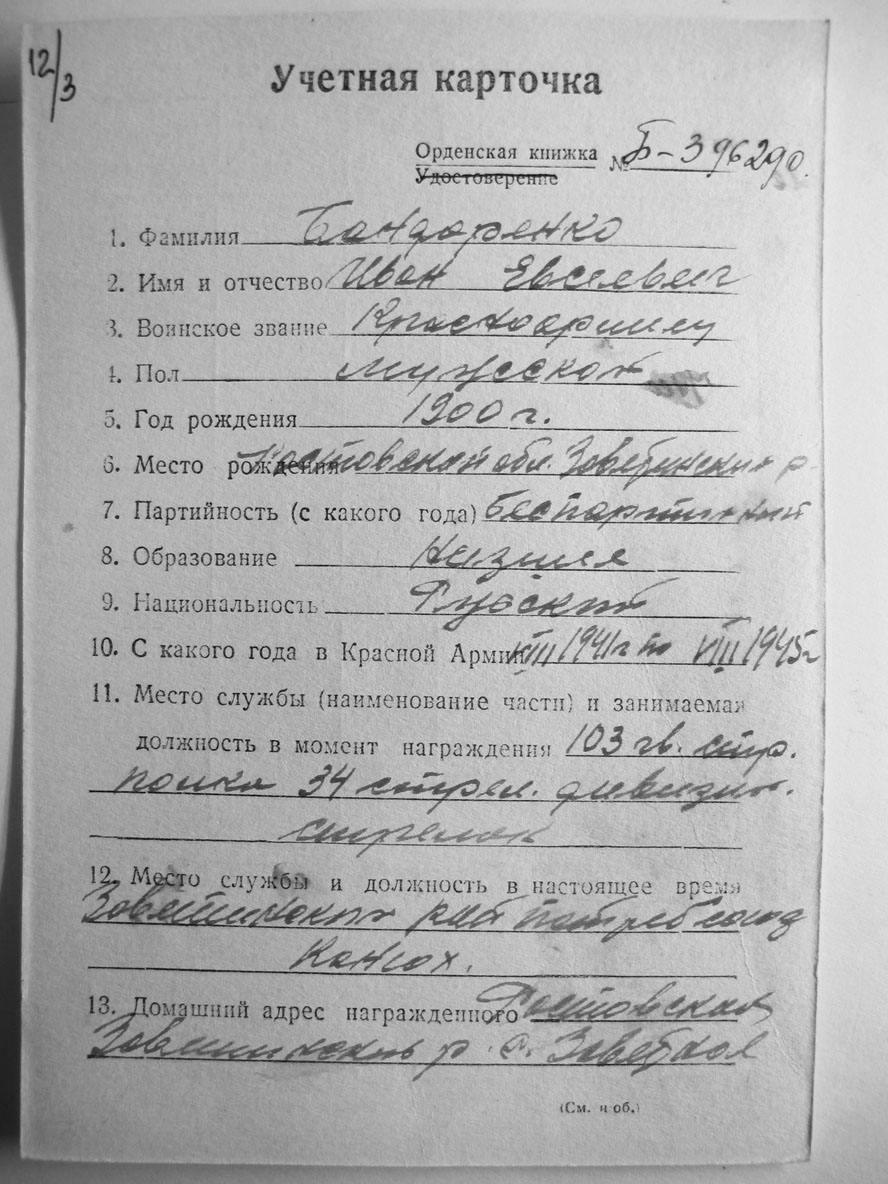 12/3
Учетная карточка
Орденская книжка № Б-396290.
Удостоверение
1. Фамилия Бандаренко
2. Имя и отчество Иван Евсеевич
3. Воинское звание Красноармеец
4. Пол мужской
5. Год рождения 1900 г.
6. Место рождения Ростовской обл. Заветинский р-
7. Партийность (с какого года) беспартийный
8. Образование Низшее
9. Национальность Русский
10. С какого года в Красной Армии VIII 1941 г по VIII 1945 г
11. Место службы (наименование части) и занимаемая
должность в момент награждения 103 гв. стр.
полка 34 стрел. дивизии.
стрелок
12. Место службы и должность в настоящее время
Заветинский рай потребсоюз
Конюх.
13. Домашний адрес награжденного Ростовская
Заветинский р. с. Заветное
(См. н об.)